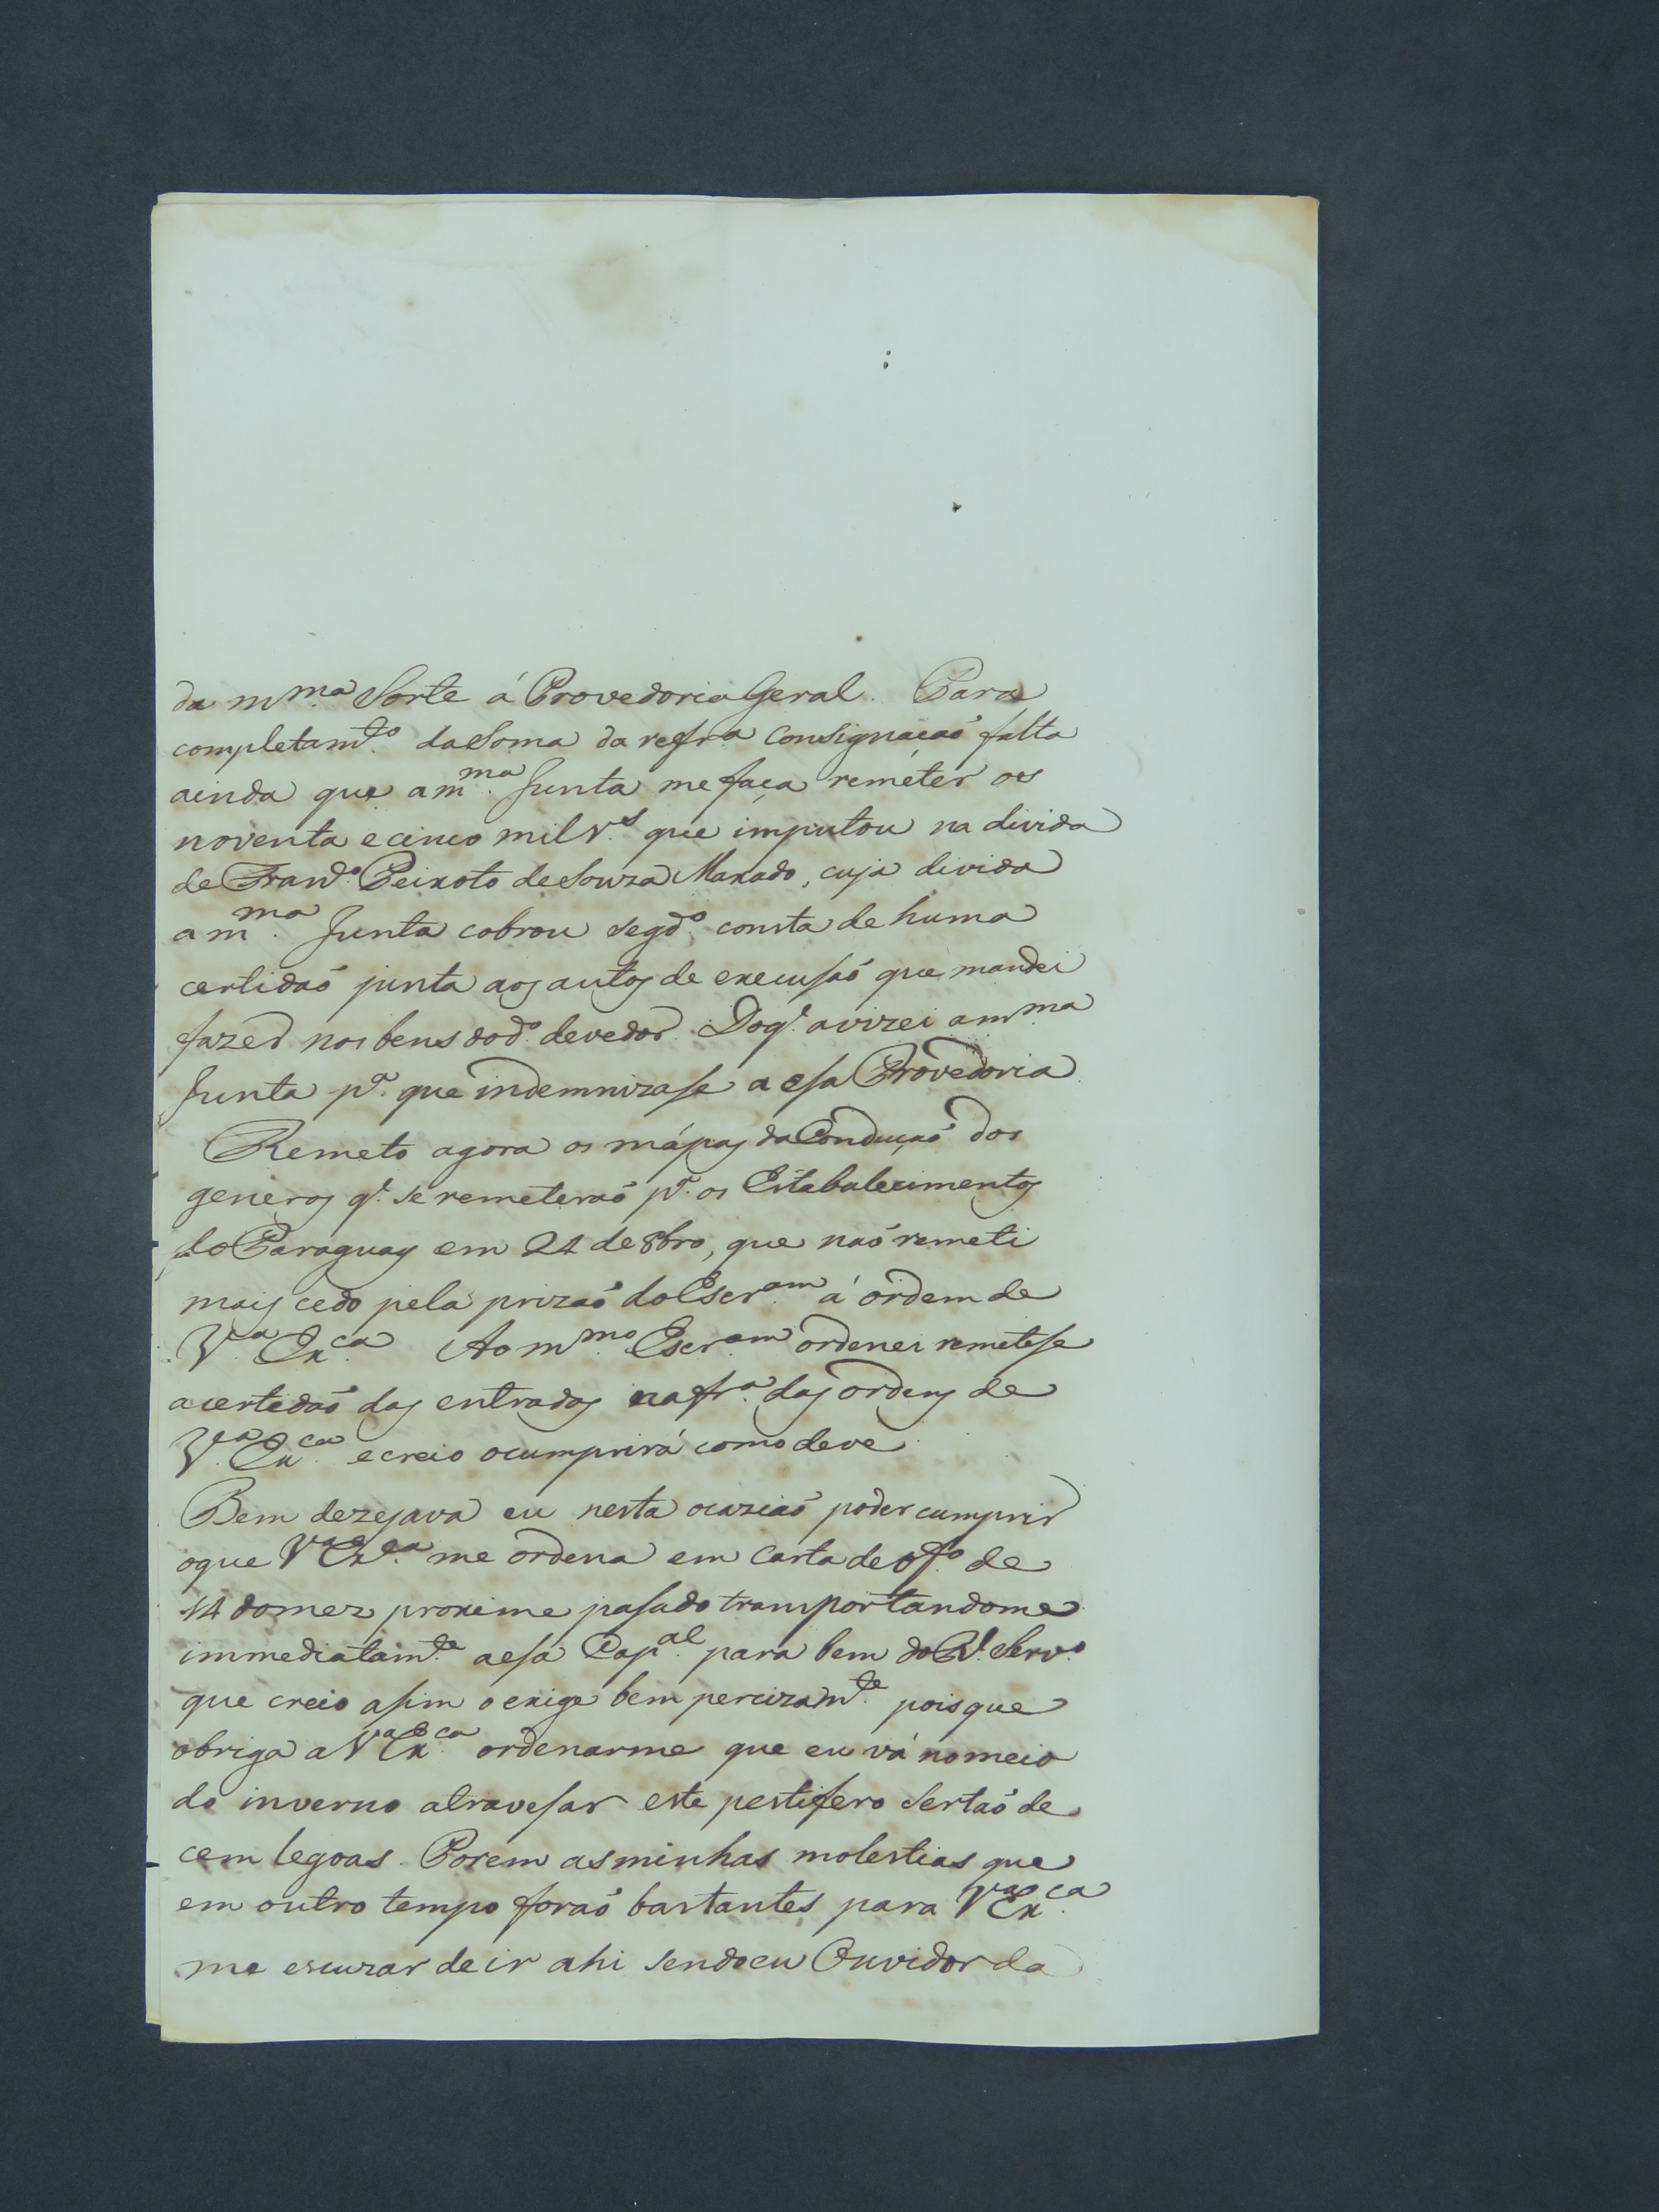 da m.ma Sorte á Provedoria Geral. Para
completam.to da Soma da refr.a Consignaçaõ falta
ainda que a m.ma Junta me faça remeter os
noventa e cinco mil r.s que imputou na divida
de Fran.co Peixoto de Souza Maxado, cuja divida
a m.ma Junta cobrou segd.o consta de huma
certidaõ junta aos autos de execusaõ que mandei
fazer nos bens do d.o devedor. Do q.l avizei a m.ma
Junta p.a que indemnizase a esa Provedoria
Remeto agora os mápas da Conduçaõ dos
generos q.e se remeteraõ p.a os Estabalecimentos
do Paraguay em 24 de 8bro, que naõ remeti
mais cedo pela prizaõ do Escr.am á ordem de
V.a Ex.ca Ao m.mo Escr.am ordenei remetese
a certidaõ das entradas na fr.a das ordens de
V.a Ex.ca e creio o cumprirá como deve.
Bem dezejava eu nesta ocaziaõ poder cumprir
o que V.a Ex.ca me ordena em Carta de of.o de
14 do mez proxime pasado transportandome
immediatam.te a esa Cap.al para bem do R.l Serv.o
que creio asim o exige bem percizam.te pois que
obriga a V.a Ex.ca ordenarme que eu vá no meio
do inverno atravesar este pestifero Sertaõ de
cem legoas. Porem as minhas molestias que
em outro tempo foraõ bastantes para V.a Ex.ca
me escuzar de ir ahi sendo eu Ouvidor da